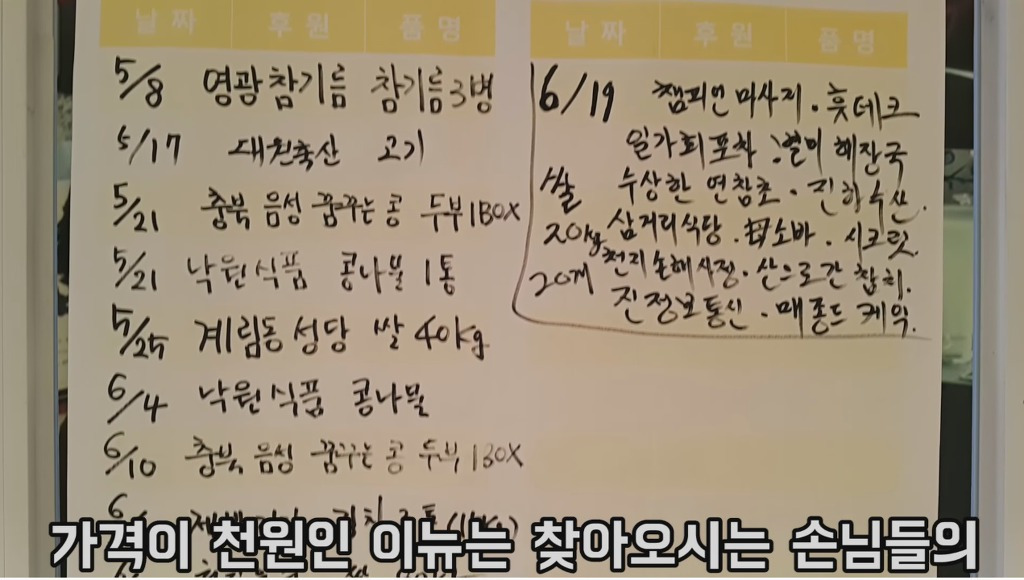 날짜 후원 품명
5/8 영광참기름 참기름3병
5/17 대원축산 고기
5/21 충북 음성 꿈꾸는 콩 두부 1BOX
5/21 낙원식품 콩나물 1통
5/25 계림동성당 쌀 40kg
6/4 낙원식품 콩나물
6/10 충북 음성 꿈꾸는 콩 두부 1BOX
날짜 후원 품명
6/19 챔피언마사지·휴테크
일가회포차·별미해장국
쌀 수상한 연참초·진하수산.
20kg 삼거리식당·舟소바·시크릿.
20개 천지손해사정·산으로간참치.
진정보통신·매종드케익.
가격이 천원인 이뉴는 찾아오시는 손님들의